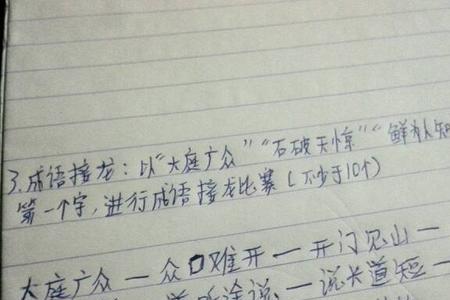 3.成语接龙：以“大庭广众”“石破天惊”“鲜为人知
第一个字，进行成语接龙比赛(不少于10个)
大庭广众一众口难开一开门见山一
道听途说一说长道短一